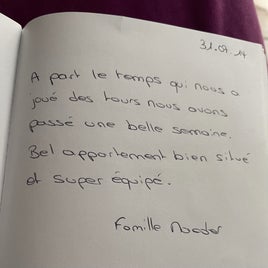 31.07.14
A part le temps qui nous a
joué des tours nous avons
passé une belle semaine.
Bel appartement bien situé
et super équipé.
Famille